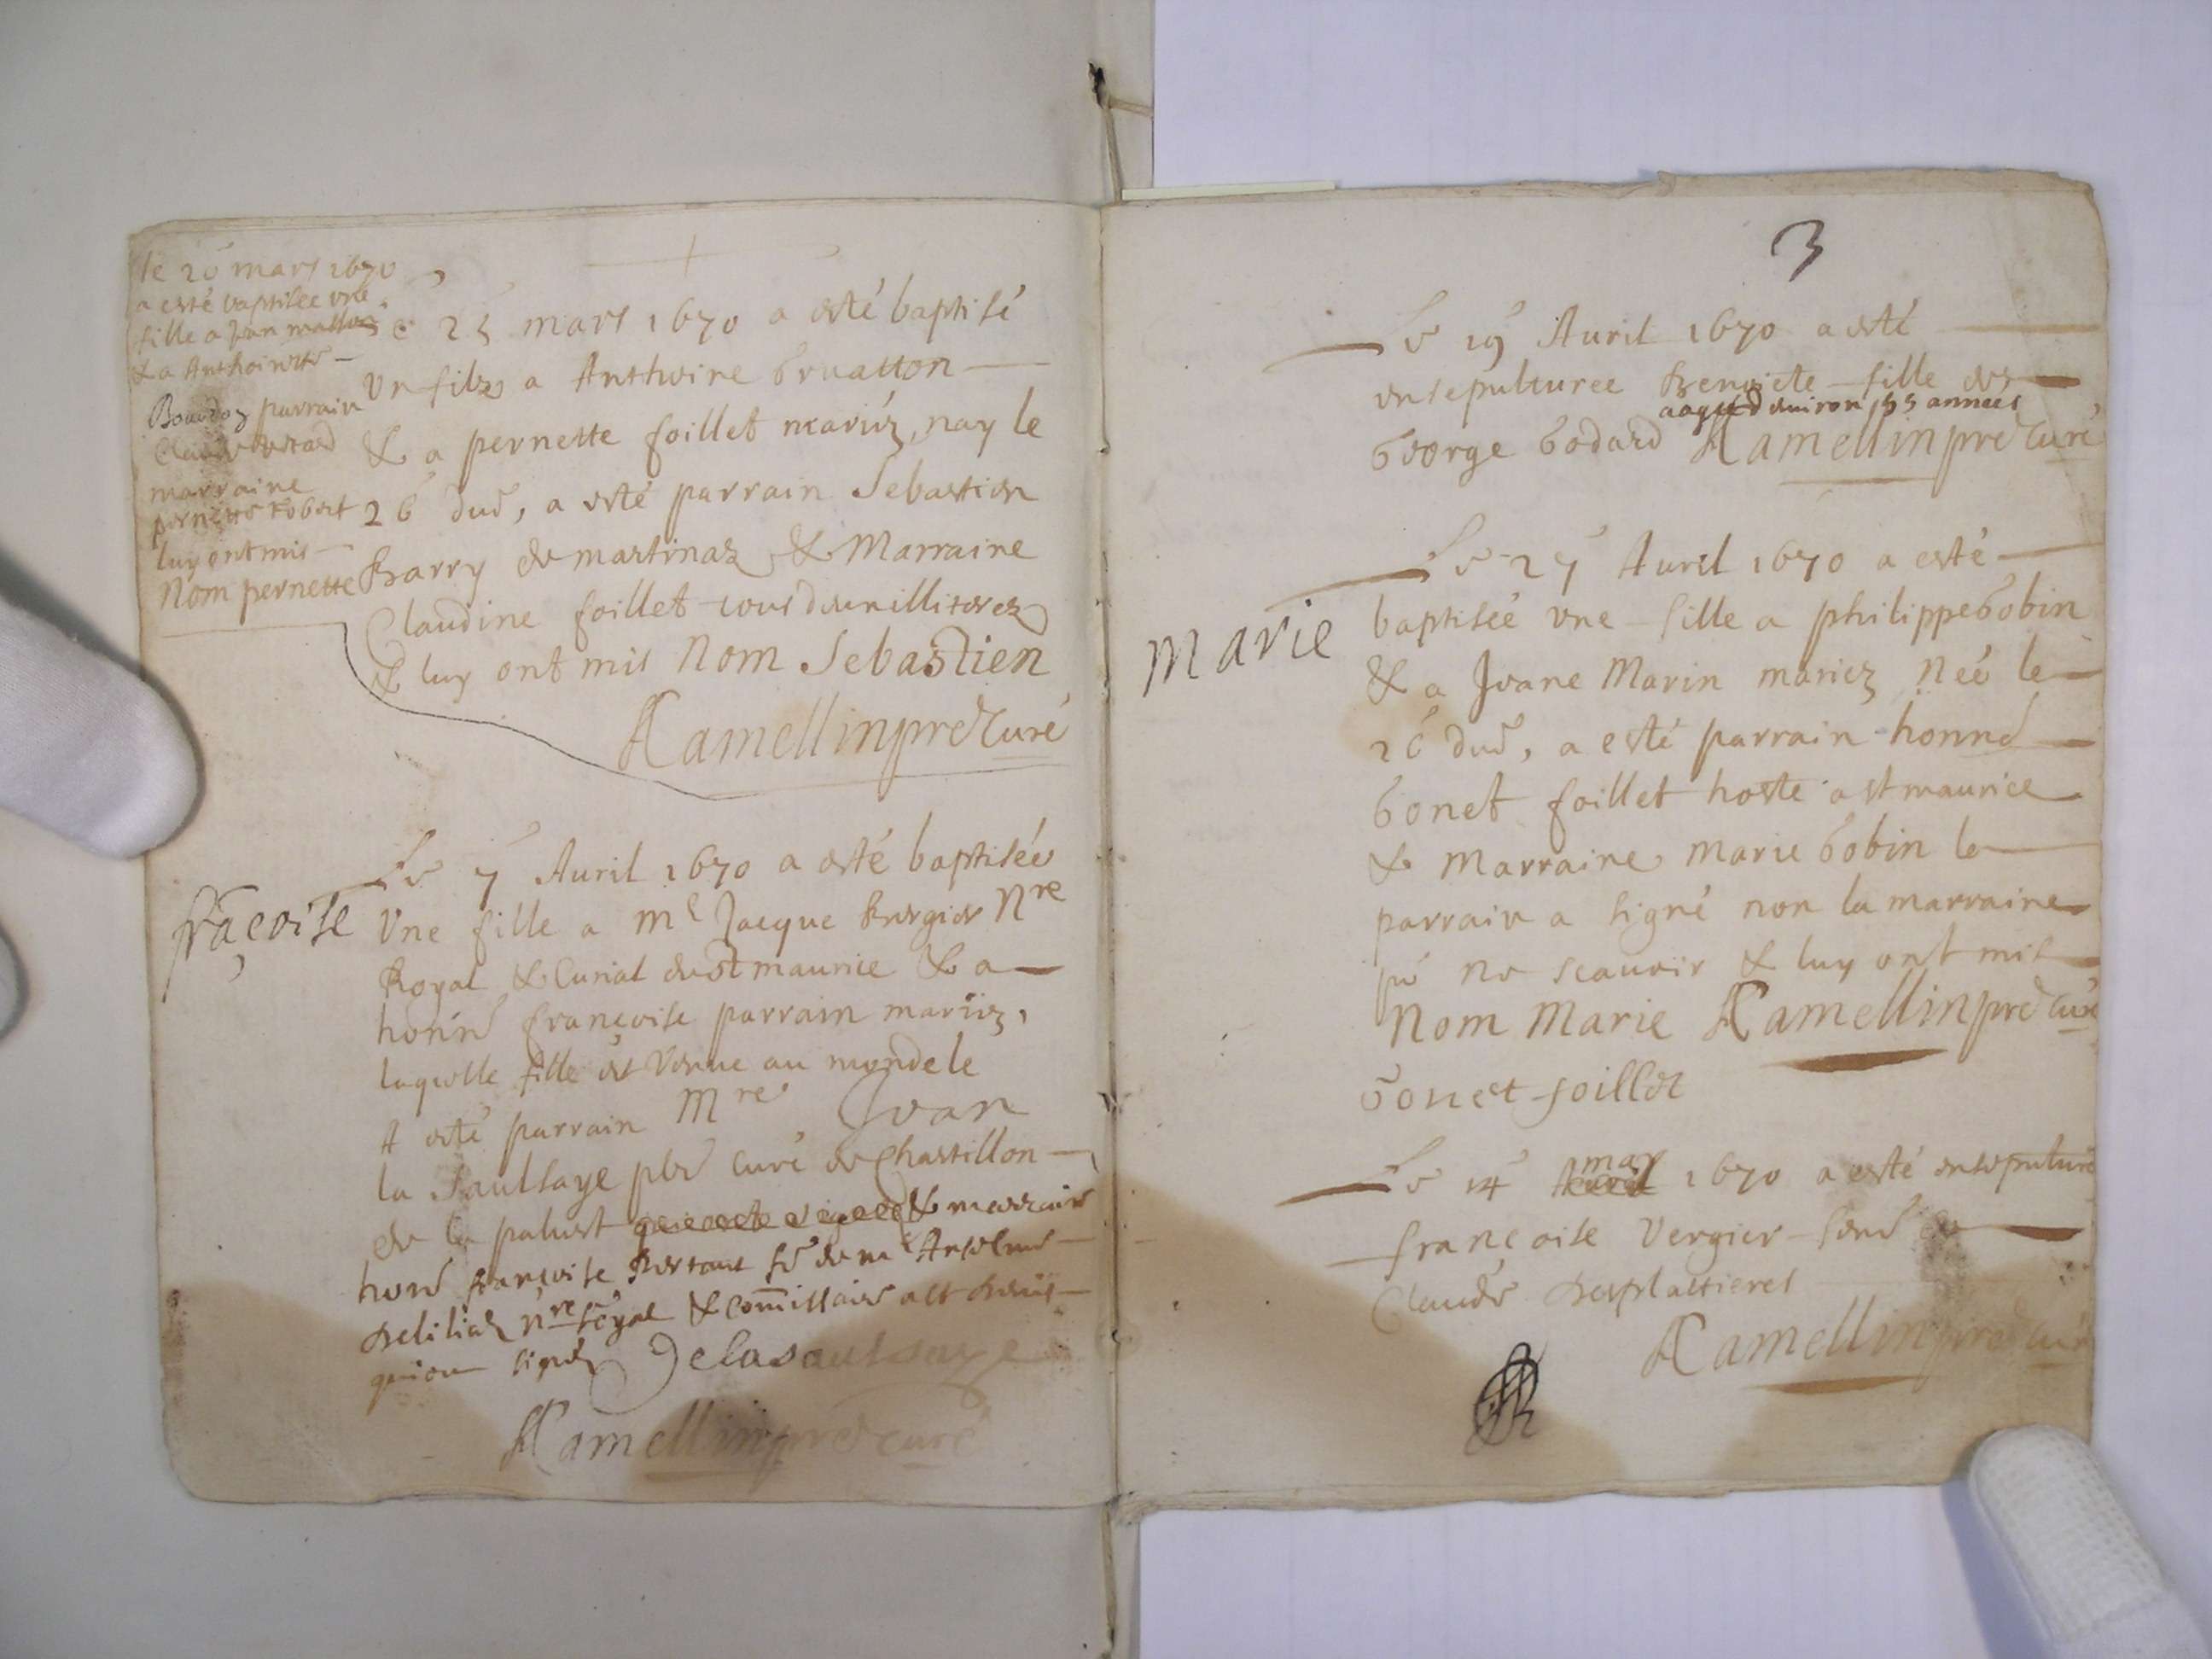 le 26 mars 1670
a esté baptisee une
fille a Jean
& a Anthoinette
parrain
Claude
marraine
pernette Robert
luy ont mis
Nom pernette
Le 25 mars 1670 a esté baptisé
Un filz a Anthoine Gruatton
& a pernette foillet mariéz, nay le
26 dud, a esté parrain Sebastien
Barry de martinaz & Marraine
Claudine foillet tous
& luy ont mis Nom Sebastien
Ramellin pre Curé
françoise
Le 7 Auril 1670 a esté baptisée
Une fille a Me Jacque Bergier Nre
Royal & Curial de st maurice & a
honne françoise parrain mariéz,
laquelle fille est Venue au monde le
A esté parrain Mre Jean
la Saulsaye pbr curé de Chastillon
de la palust & marraine
honne françoise fe de me Anselme
nre royal & commissaire
signé Delasaulsaye
Ramellin pre curé
3
Le 19 Auril 1670 a esté
ensepulturee Benoicte fille de
aagee d'enuiron annees
George Godard Ramellin pre Curé
Marie
Le 27 Auril 1670 a esté
baptisée une fille a philippe Gobin
& a Jeane Marin mariez Née le
26 dud, a esté parrain honne
Gonet foillet hoste a st maurice
& Marraine Marie Gobin le
parrain a signé non la marraine
pr ne scauoir & luy ont mis
Nom Marie Ramellin pre curé
Gonet foillet
Le 14 may 1670 a esté ensepulturé
françoise Vergier
Claude Desplattieres
Ramellin pre curé